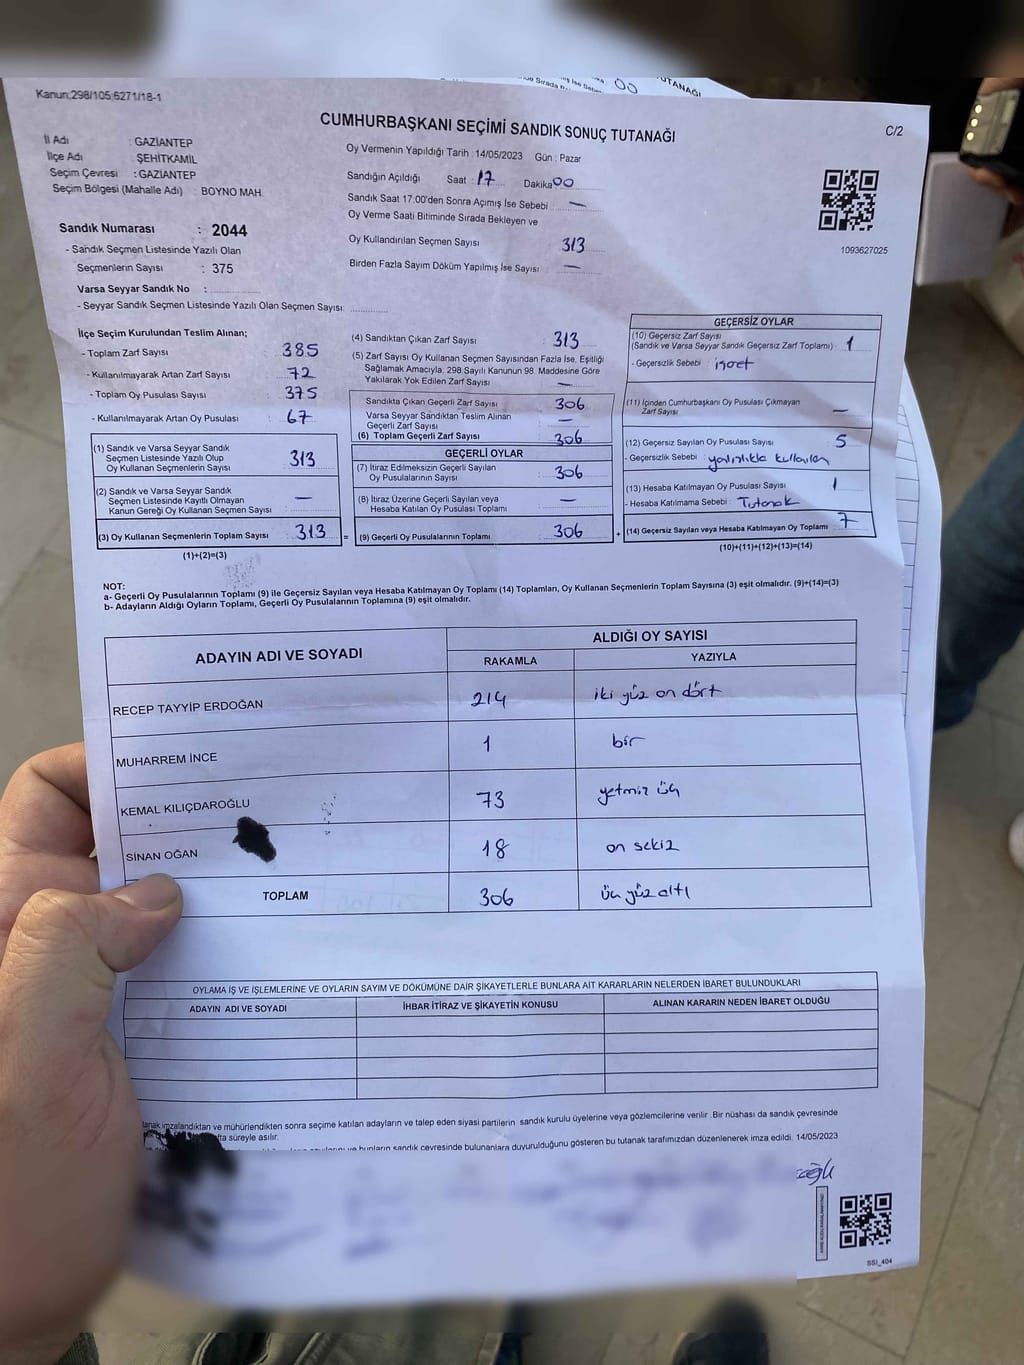 TUTANAĞI
Kanun;298/105;6271/18-1
C/2
CUMHURBAŞKANI SEÇİMİ SANDIK SONUÇ TUTANAĞI
İl Adı : GAZİANTEP
İlçe Adı : ŞEHİTKAMİL
Seçim Çevresi : GAZİANTEP
Seçim Bölgesi (Mahalle Adı) : BOYNO MAH.
Sandık Numarası : 2044
- Sandık Seçmen Listesinde Yazılı Olan
Seçmenlerin Sayısı : 375
Varsa Seyyar Sandık No :
- Seyyar Sandık Seçmen Listesinde Yazılı Olan Seçmen Sayısı:
Oy Vermenin Yapıldığı Tarih : 14/05/2023 Gün : Pazar
Sandığın Açıldığı Saat : 17 Dakika 00
Sandık Saat 17.00'den Sonra Açımış İse Sebebi : —
Oy Verme Saati Bitiminde Sırada Bekleyen ve
Oy Kullandırılan Seçmen Sayısı 313
Birden Fazla Sayım Döküm Yapılmış İse Sayısı : —
1093627025
İlçe Seçim Kurulundan Teslim Alınan;
- Toplam Zarf Sayısı : 385
- Kullanılmayarak Artan Zarf Sayısı : 72
- Toplam Oy Pusulası Sayısı : 375
- Kullanılmayarak Artan Oy Pusulası : 67
(1) Sandık ve Varsa Seyyar Sandık
Seçmen Listesinde Yazılı Olup
Oy Kullanan Seçmenlerin Sayısı 313
(2) Sandık ve Varsa Seyyar Sandık
Seçmen Listesinde Kayıtlı Olmayan
Kanun Gereği Oy Kullanan Seçmen Sayısı —
(3) Oy Kullanan Seçmenlerin Toplam Sayısı 313 =
(1)+(2)=(3)
(4) Sandıktan Çıkan Zarf Sayısı 313
(5) Zarf Sayısı Oy Kullanan Seçmen Sayısından Fazla İse, Eşitliği
Sağlamak Amacıyla, 298 Sayılı Kanunun 98. Maddesine Göre
Yakılarak Yok Edilen Zarf Sayısı —
Sandıkta Çıkan Geçerli Zarf Sayısı 306
Varsa Seyyar Sandıktan Teslim Alınan
Geçerli Zarf Sayısı —
(6) Toplam Geçerli Zarf Sayısı 306
GEÇERLİ OYLAR
(7) İtiraz Edilmeksizin Geçerli Sayılan
Oy Pusulası Sayısı 306
(8) İtiraz Üzerine Geçerli Sayılan veya
Hesaba Katılan Oy Pusulası Toplamı —
(9) Geçerli Oy Pusulalarının Toplamı 306 +
GEÇERSİZ OYLAR
(10) Geçersiz Zarf Sayısı
(Sandık ve Varsa Seyyar Sandık Geçersiz Zarf Toplamı) : 1
- Geçersizlik Sebebi : işaret
(11) İçinden Cumhurbaşkanı Oy Pusulası Çıkmayan
Zarf Sayısı —
(12) Geçersiz Sayılan Oy Pusulası Sayısı 5
- Geçersizlik Sebebi : yanlışlıkla kullanılan
(13) Hesaba Katılmayan Oy Pusulası Sayısı 1
- Hesaba Katılmama Sebebi : Tutanak
(14) Geçersiz Sayılan veya Hesaba Katılmayan Oy Toplamı 7
(10)+(11)+(12)+(13)=(14)
NOT:
a- Geçerli Oy Pusulalarının Toplamı (9) ile Geçersiz Sayılan veya Hesaba Katılmayan Oy Toplamı (14) Toplamları, Oy Kullanan Seçmenlerin Toplam Sayısına (3) eşit olmalıdır. (9)+(14)=(3)
b- Adayların Aldığı Oyların Toplamı, Geçerli Oy Pusulalarının Toplamına (9) eşit olmalıdır.
ADAYIN ADI VE SOYADI ALDIĞI OY SAYISI
RAKAMLA YAZIYLA
RECEP TAYYİP ERDOĞAN 214 iki yüz on dört
MUHARREM İNCE 1 bir
KEMAL KILIÇDAROĞLU 73 yetmiş üç
SİNAN OĞAN 18 on sekiz
TOPLAM 306 üç yüz altı
OYLAMA İŞ VE İŞLEMLERİNE VE OYLARIN SAYIM VE DÖKÜMÜNE DAİR ŞİKAYETLERLE BUNLARA AİT KARARLARIN NELERDEN İBARET BULUNDUKLARI
ADAYIN ADI VE SOYADI İHBAR İTİRAZ VE ŞİKAYETİN KONUSU ALINAN KARARIN NEDEN İBARET OLDUĞU
imzalandıktan ve mühürlendikten sonra seçime katılan adayların ve talep eden siyasi partilerin sandık kurulu üyelerine veya gözlemcilerine verilir .Bir nüshası da sandık çevresinde
süreyle asılır.
bunların sandık çevresinde bulunanlara duyurulduğunu gösteren bu tutanak tarafımızdan düzenlenerek imza edildi. 14/05/2023
SSI_404